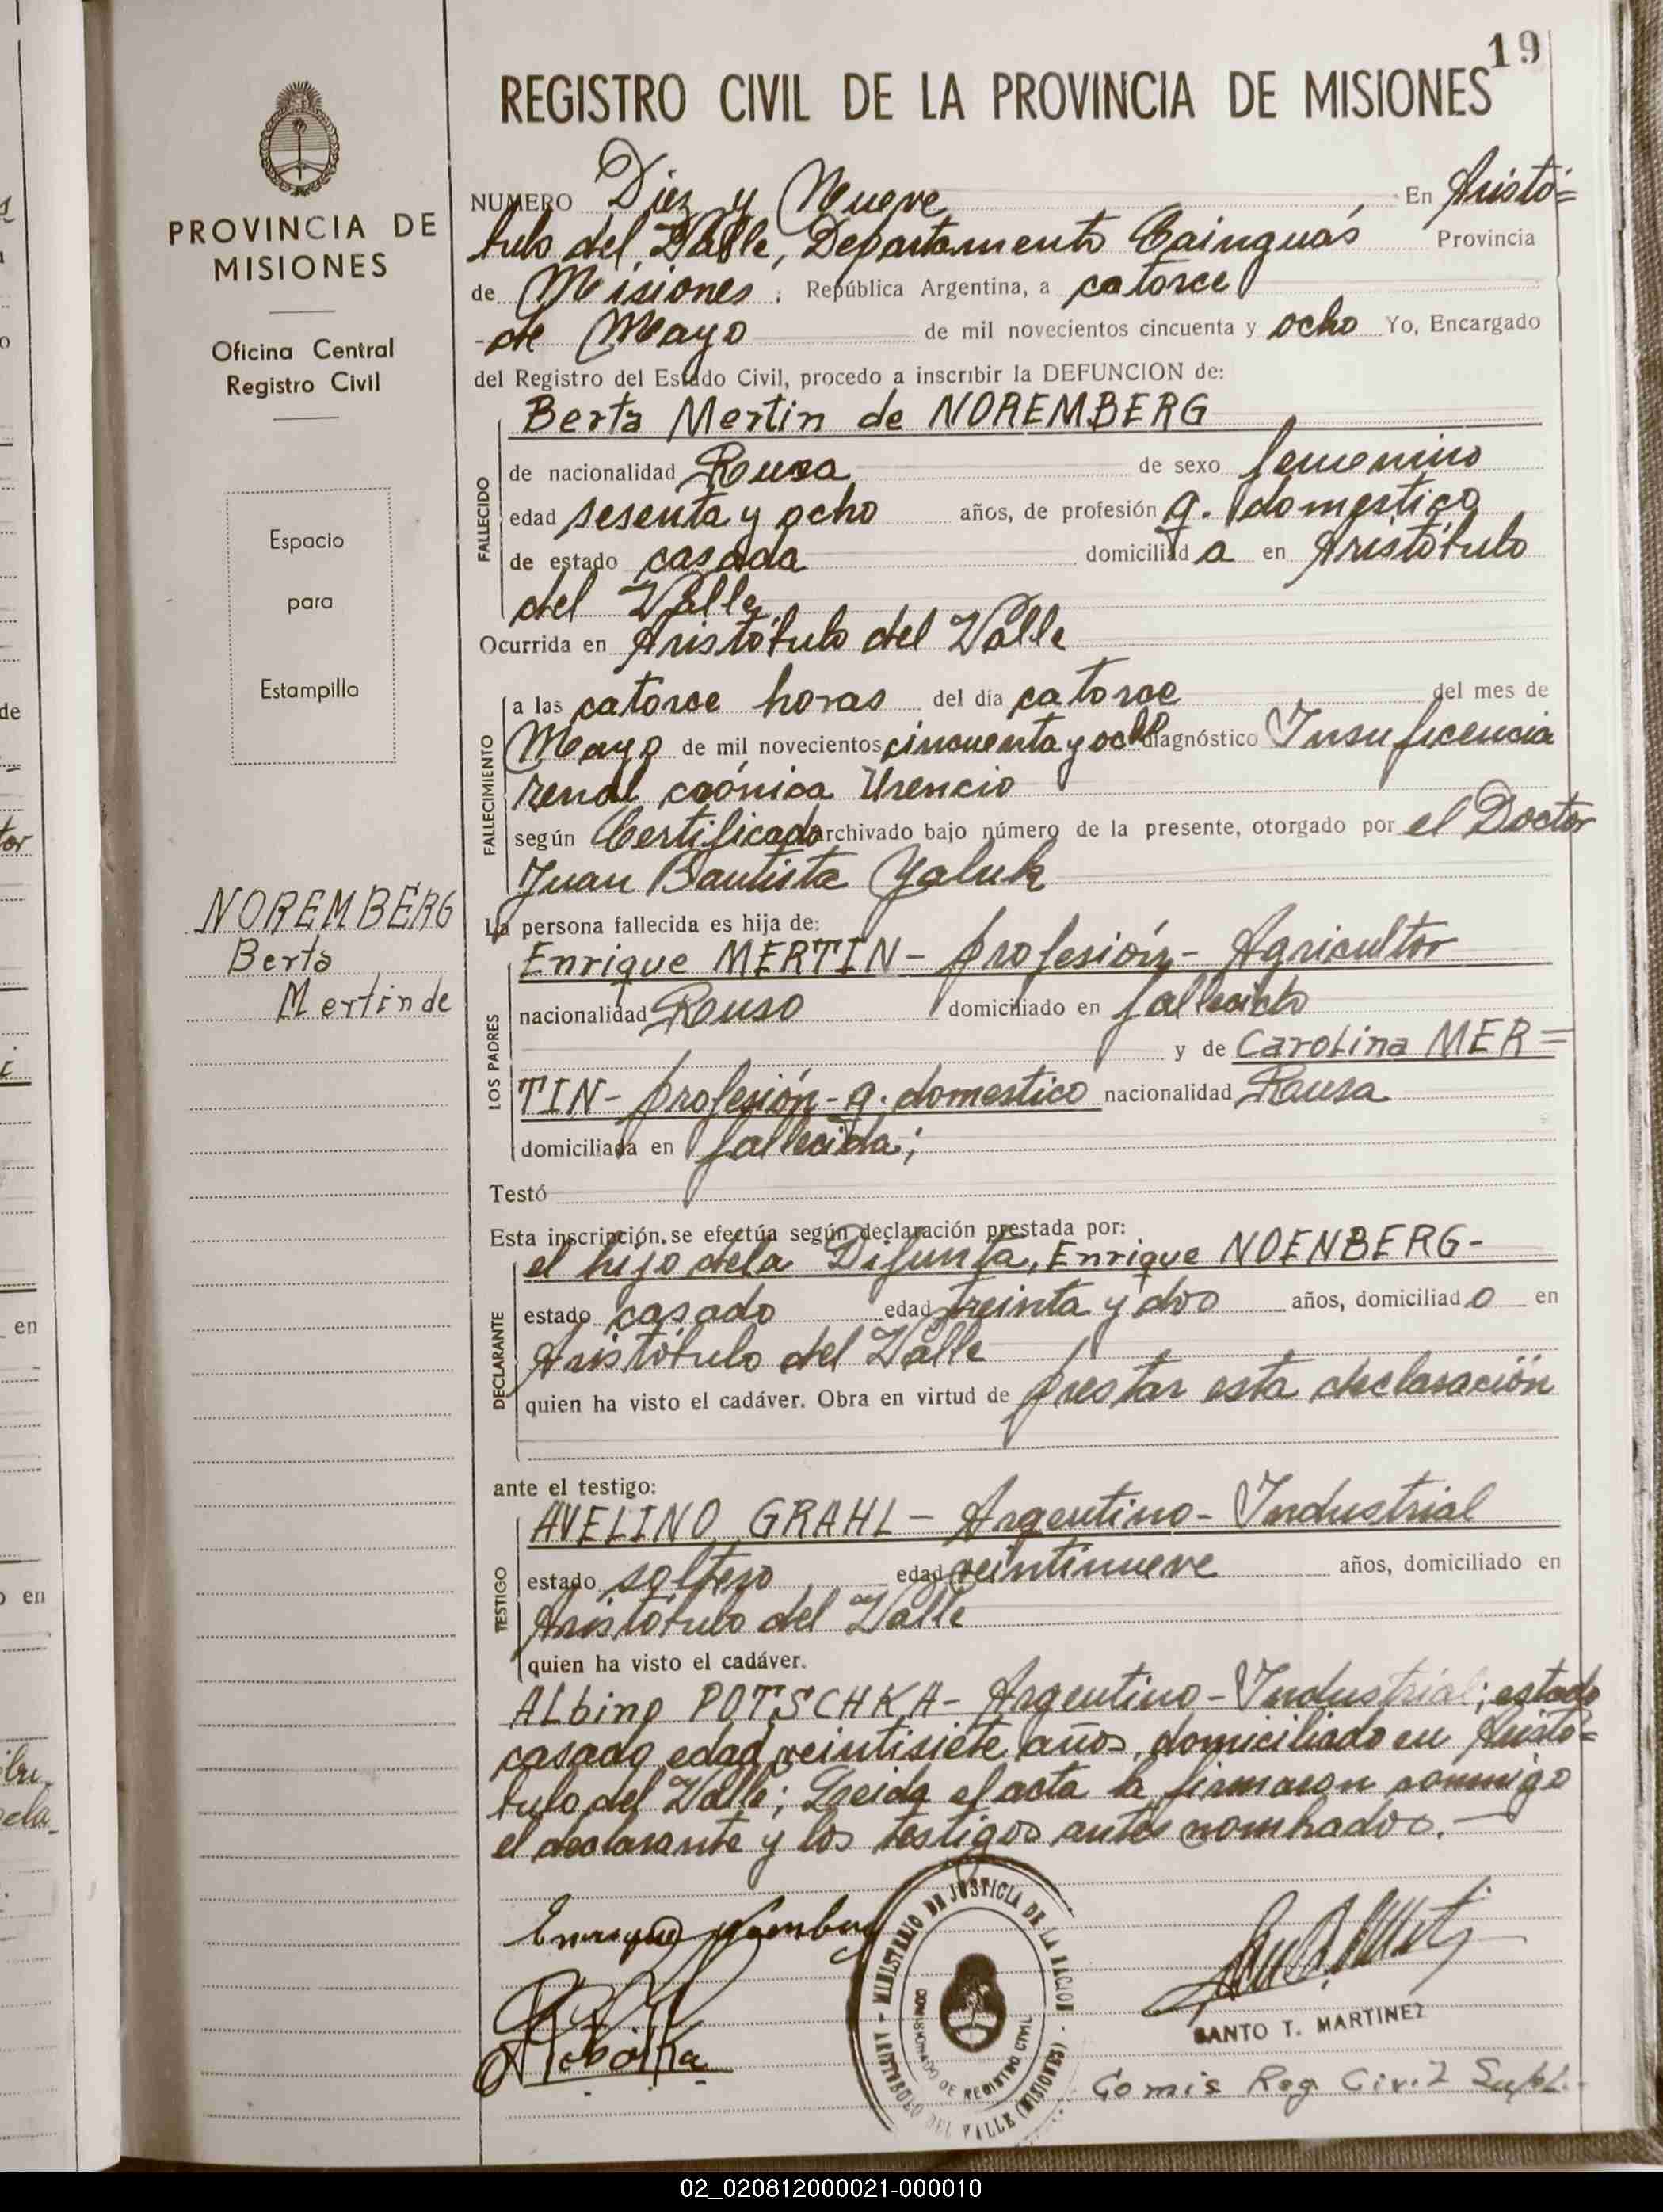 19
REGISTRO CIVIL DE LA PROVINCIA DE MISIONES
PROVINCIA DE
MISIONES
Oficina Central
Registro Civil
Espacio
para
Estampilla
NOREMBERG
Berta
Mertin de
NUMERO Diez y Nueve En Aristó=
bulo del Valle, Departamento Cainguás Provincia
de Misiones ; República Argentina, a catorce
de Mayo de mil novecientos cincuenta y ocho Yo, Encargado
del Registro del Estado Civil, procedo a inscribir la DEFUNCION de:
Berta Mertin de NOREMBERG
FALLECIDO
de nacionalidad Rusa de sexo femenino
edad sesenta y ocho años, de profesión q. domestico
de estado casada domiciliad a en Aristóbulo
del Valle
Ocurrida en Aristóbulo del Valle
FALLECIMIENTO
a las catorce horas del día catorce del mes de
Mayo de mil novecientos cincuenta y ocho diagnóstico Insuficencia
renal crónica Urencio
según Certificado archivado bajo número de la presente, otorgado por el Doctor
Juan Bautista Yaluk
La persona fallecida es hija de:
LOS PADRES
Enrique MERTIN - profesión - Agricultor
nacionalidad Ruso domiciliado en fallecido
y de Carolina MER=
TIN - profesión - q. domestico nacionalidad Rusa
domiciliada en fallecida;
Testó
Esta inscripción se efectúa según declaración prestada por:
DECLARANTE
el hijo dela Difunta, Enrique NOENBERG-
estado casado edad treinta y dos años, domiciliad o en
Aristóbulo del Valle
quien ha visto el cadáver. Obra en virtud de prestar esta declaración
ante el testigo:
TESTIGO
AVELINO GRAHL - Argentino - Industrial
estado soltero edad veintinueve años, domiciliado en
Aristóbulo del Valle
quien ha visto el cadáver.
ALbino POTSCHKA - Argentino - Industrial; estado
casado edad veintisiete años, domiciliado en Aristó=
bulo del Valle; Leida el acta la firmaron conmigo
el declarante y los testigos antes nombrados.-
Enrique
MINISTERIO DE JUSTICIA DE LA NACION
COMISIONADO DE REGISTRO CIVIL
ARISTOBULO DEL VALLE (MISIONES)
SANTO T. MARTINEZ
Comis Reg Civil Supl.-
02_020812000021-000010